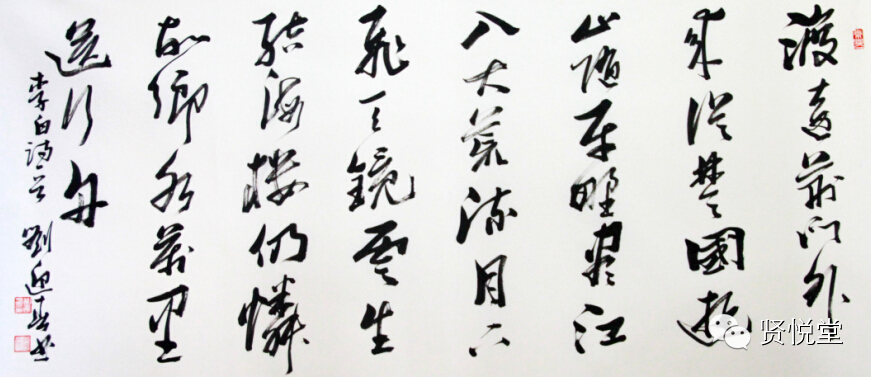 渡遠荆门外
来從楚國遊
山隨平野盡江
入大荒流月下
飛天鏡雲生
結海樓仍憐
故鄉水萬里
送行舟
李白诗一首 劉迎春书
贤悦堂